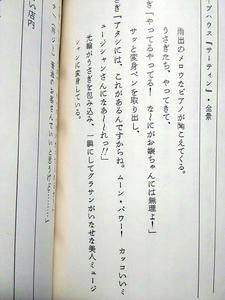 ブハウス『サーティン』・全景
雨出のメロウなピアノが聞こえてくる。
うさぎたち、やってきて、
ぎ「やってるやってる! な~にがお嬢ちゃんには無理よ!」
サッと変身ペンを取り出し、
ぎ「アタシには、これがあるんですからね。ムーン・パワー! カッコいいミ
ュージシャンさんになあ~~れっ!!」
光輪がうさぎを包み込み、一瞬にしてグラサンがいなせな美人ミュージ
シャンに変身している。
い店内